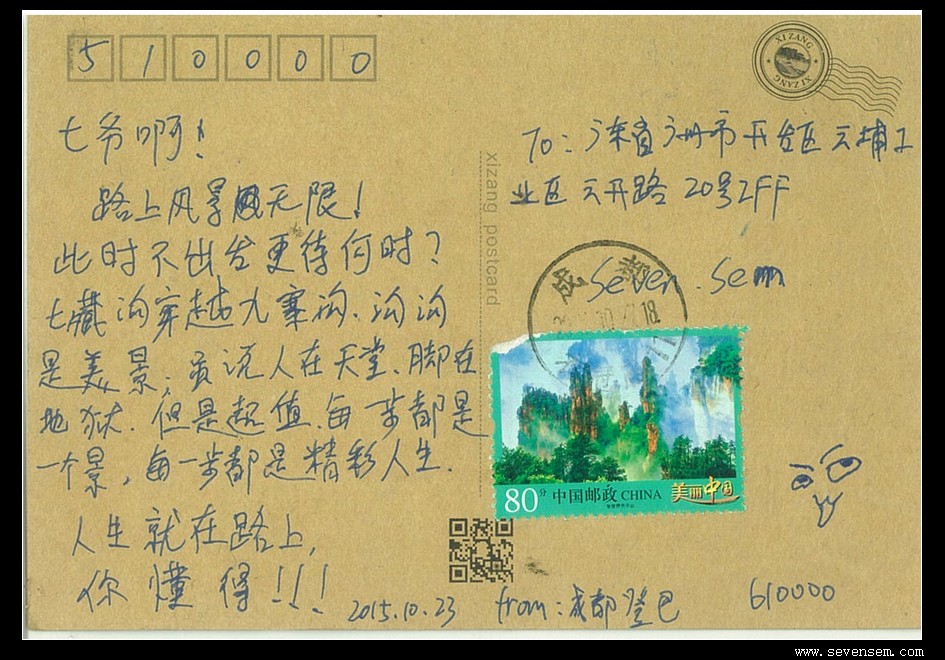 510000
XI ZANG
XI ZANG
七爷啊!
路上风景风无限!
此时不出台更待何时?
七藏沟穿越九寨沟.沟沟
是美景,虽说人在天堂.脚在
地狱.但是超值.每一步都是
一个景,每一步都是精彩人生.
人生就在路上,
你懂得!!!
2015.10.23
xizang postcard
To:广东省广州市开发区云埔工
业区云开路20号2FF
Seven.Sem
成都
18
80分 中国邮政 CHINA 美丽中国
from:成都 登巴
610000
www.sevensem.com